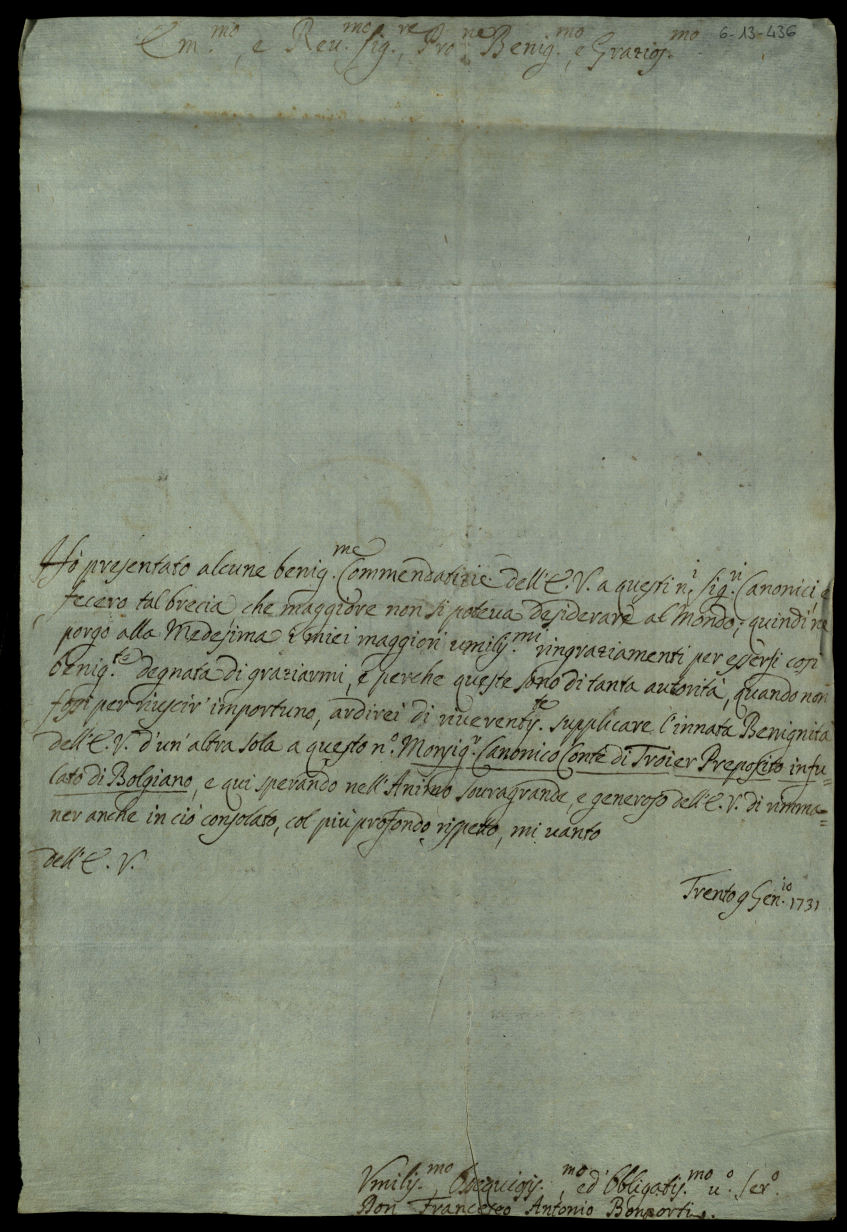 Em.mo, e Reu.mo Sig.re, Pro.ne Benig.mo, e Grazios.mo
6-13-436
Hò presentato alcune benig.me Commendatizie dell'E.V. a questi n.i Sig.ri Canonici, e
fecero tal brecia che maggiore non si poteua desiderare al Mondo; quindi ne
porgo alla Medesima i miei maggiori umilis.mi ringraziamenti per essersi così
benig.te degnata di graziarmi, e perche queste sono di tanta autorità, quando non
fossi per riuscir' importuno, ardirei di riuerentis.te supplicare l'innata Benignità
dell'E.V. d'un'altra sola a questo n.o Monsig.r Canonico Conte di Troier Preposito infu=
lato di Bolgiano, e qui sperando nell'Animo souragrande, e generoso dell'E.V. di rimma=
ner anche in ciò consolato, col più profondo rispetto, mi uanto
dell'E.V.
Trento 9 Gen.io 1731
Vmilis.mo Ossequiosis.mo, ed Obligatis.mo u.o Ser.o
Don Francesco Antonio Bonporti